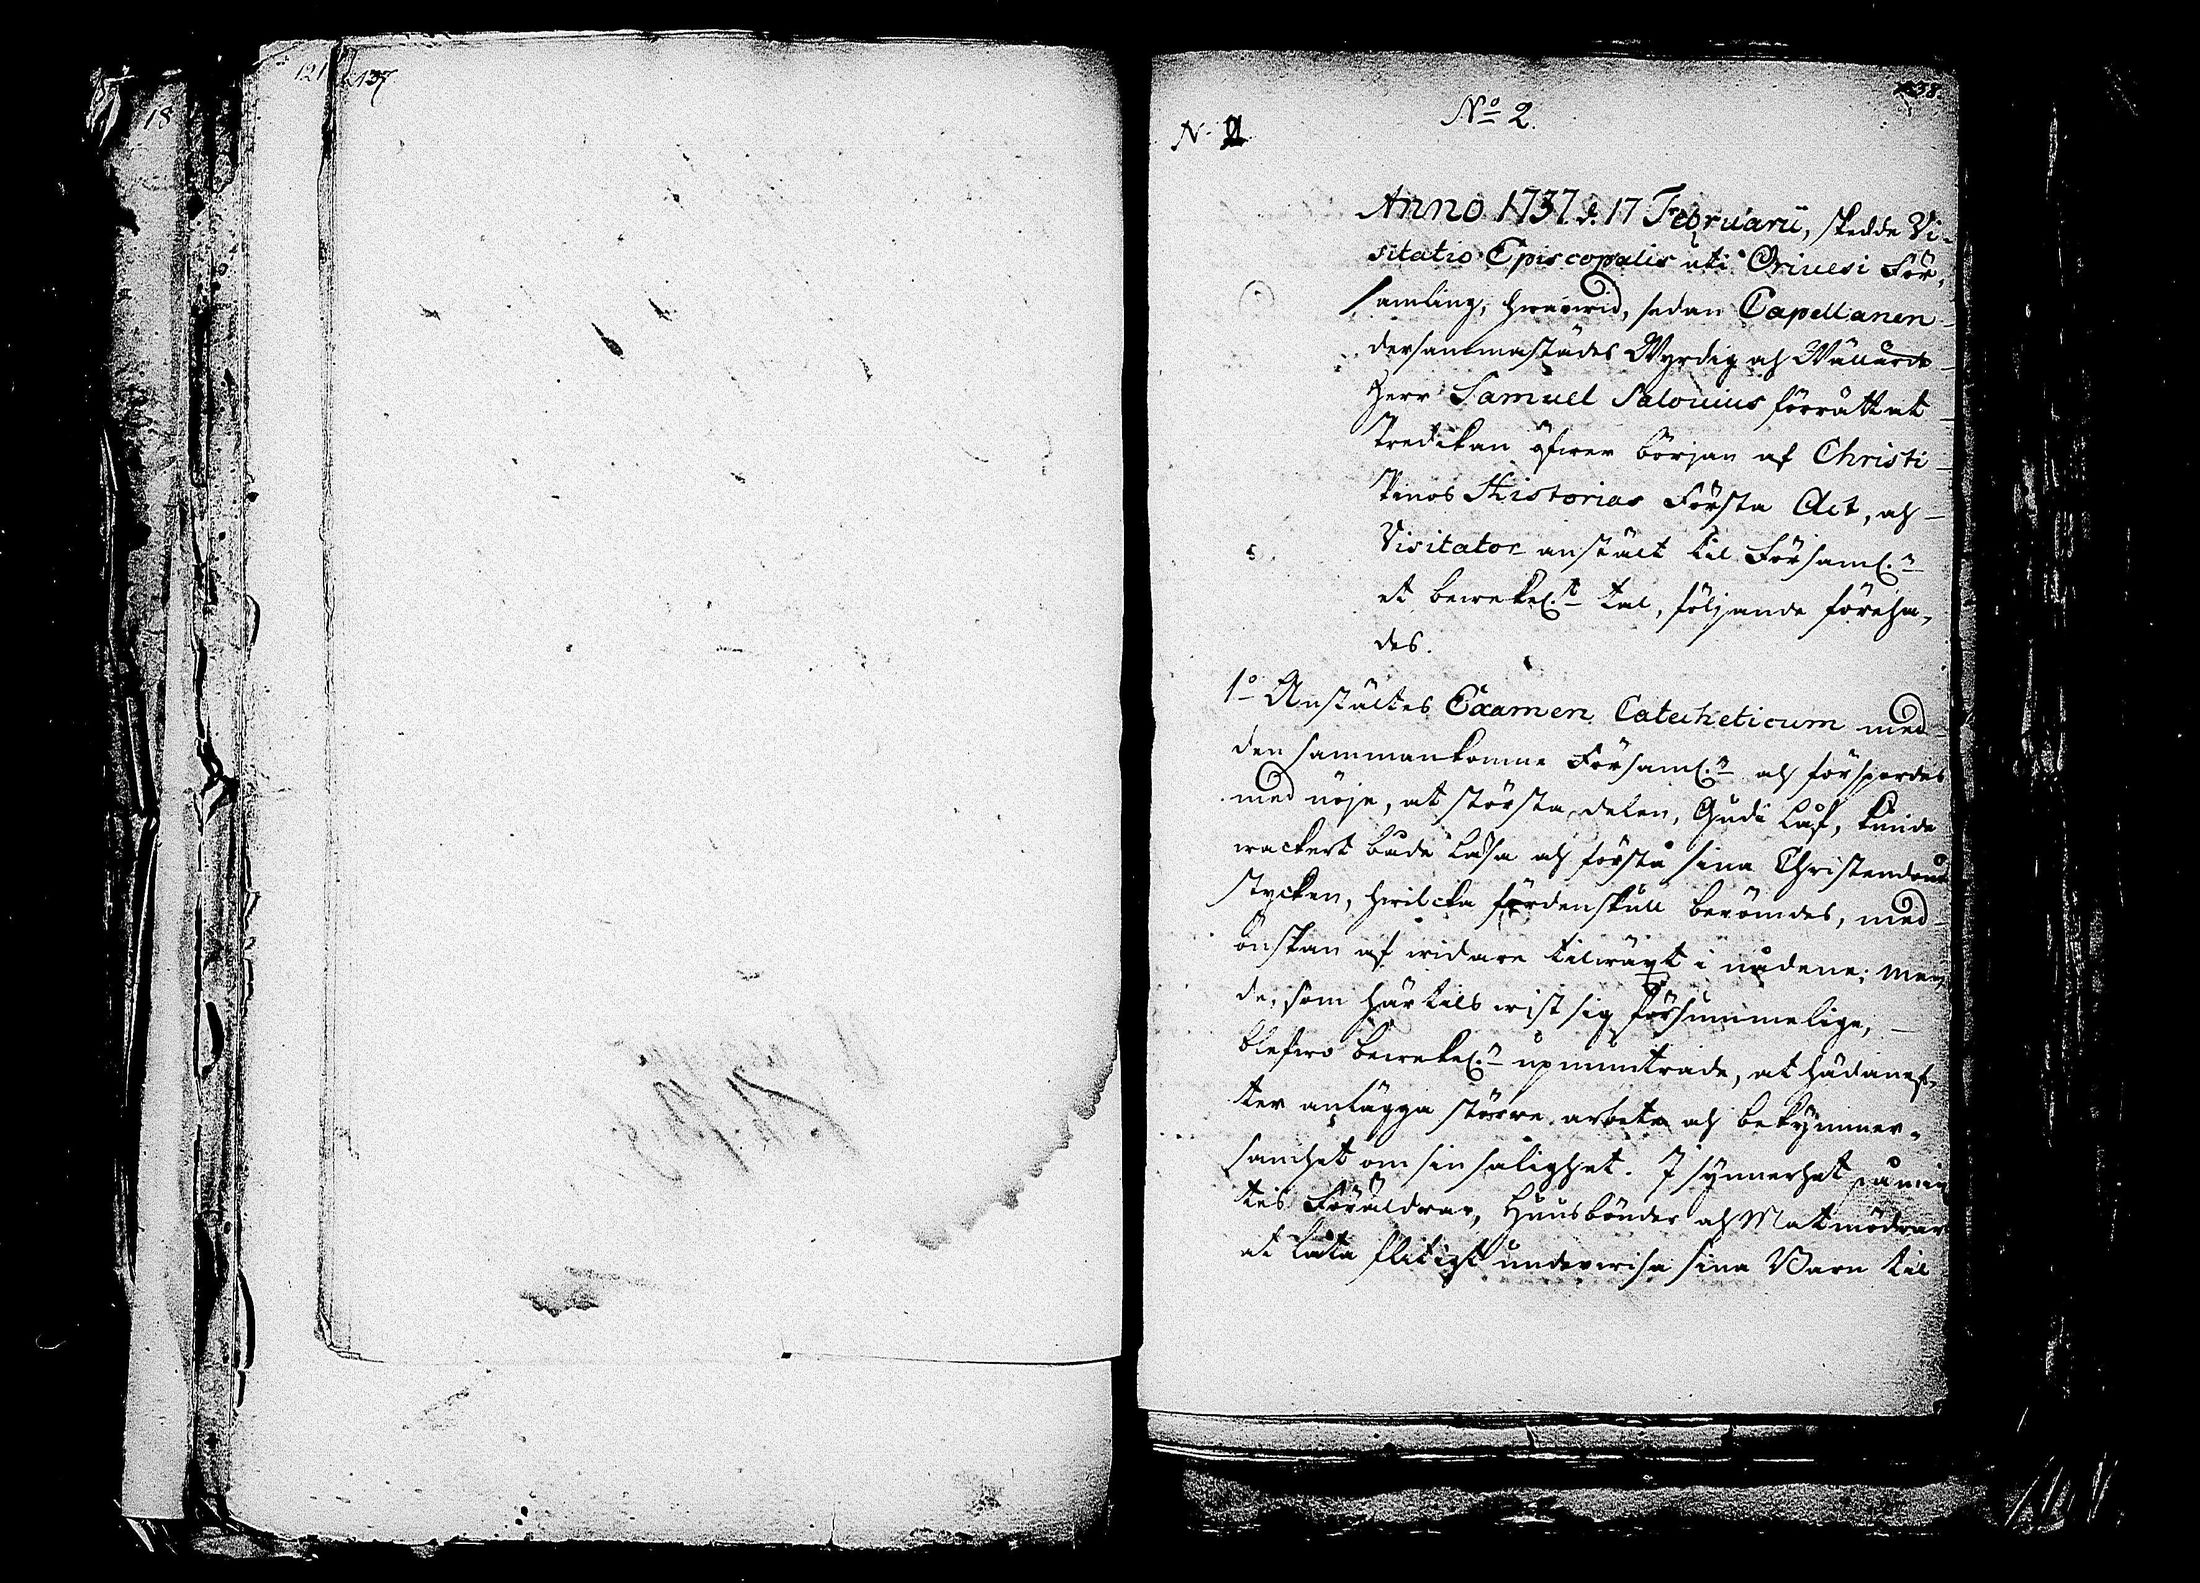 18
121
137
138.
No 2.
N.
Anno 1737 d. 17 Februarii, skedde Vi-
sitatio Episcopalis uti Orivesi För-
samling, hwarwid, sedan Capellanen
dersammastädes Wyrdig och Wällärde
Herr Samuel Salovius förrättat
Predikan öfwer början af Christi
Pinos Historias Första Act, och
Visitator anstält til Församl:n
et bewekel:t tal, följande föreha-
des.
1o Anstältes Examen Catecheticum med
den sammankomne Församl:n och förspordes
med nöje, at största delen, Gudi låf, kunde
wackert både läsa och förstå sina Christendoms
stycken, hwilcka fördenskull berömdes, med
önskan af widare tilwäxt i nådene; Men
de, som här tils wist sig försummelige,
blefwo bewekel:n upmuntrade, at hädanef-
ter anlägga större arbete och bekymmer-
samhet om sin salighet. I synnerhet påmin
tes Föräldrar, Huusbönder och Matmödrar
at låta flitigt underwisa sina Barn til